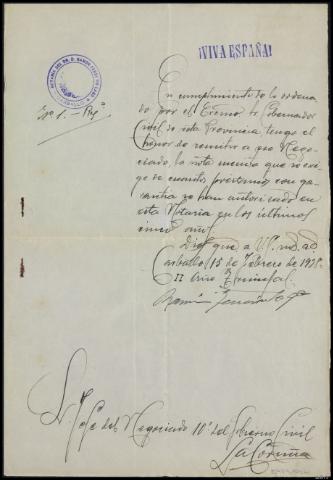 ¡VIVA ESPAÑA!
NOTARIA DEL DR. D. RAMON
Nº 1.-
En cumplimiento de lo ordena-
do por el Excmo Sr Gobernador
Civil de esta Provincia tengo el
honor de remitir a ese Nego-
ciado, la nota que se exi-
ge de cuantos prestamos con ga-
rantia se han autorizado en
esta Notaria en los ultimos
cinco años.
Dios gue a V.S. ms. as.
Carballo 15 de Febrero de 1938.
II Año Triunfal.
Ramón
Sr Jefe del Negociado 10º del Gobierno Civil
La Coruña